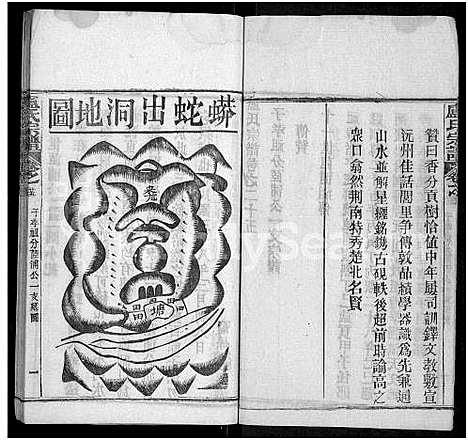 盧氏宗譜
贊曰香分貢樹恰值中年屢司訓鐸文教敷宣
沅州佳話閭里爭傳敦品績學器識爲先兼通
山水並解星躔銘鐫古硯軼後超前時論高之
眾口翕然荆南特秀楚北名賢
蟒蛇出洞地圖
塘
田
子孝祖分陸浦公一支墓圖
一